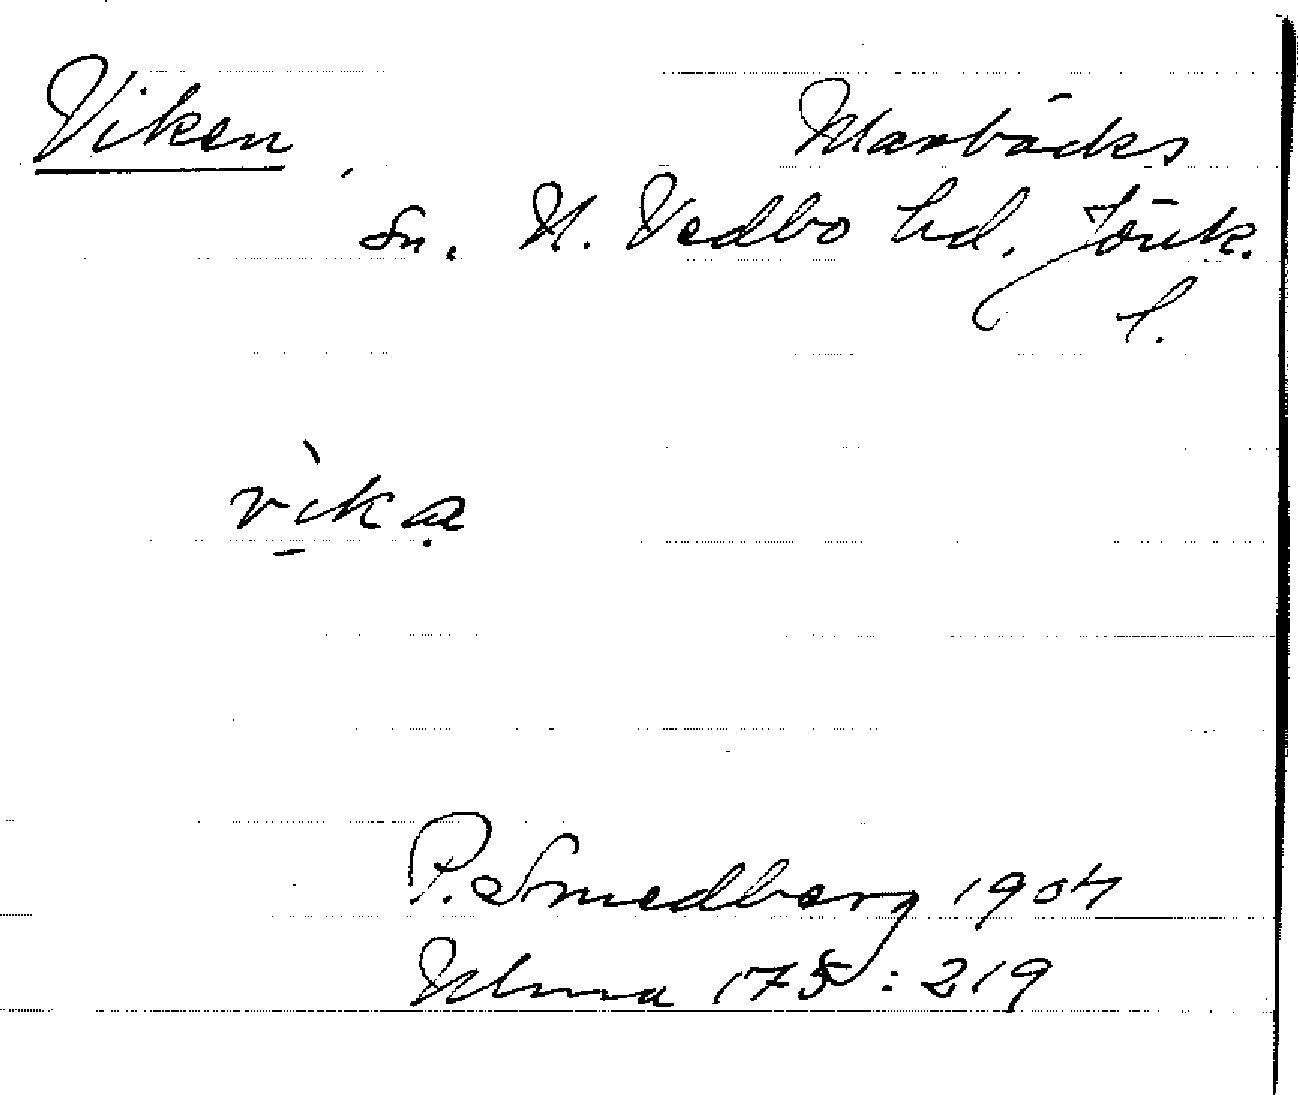 Viken, Marbäcks
sn. N. Vedbo hd, Jönk.
l.
vìka
P. Smedberg 1904
Ulma 175:219